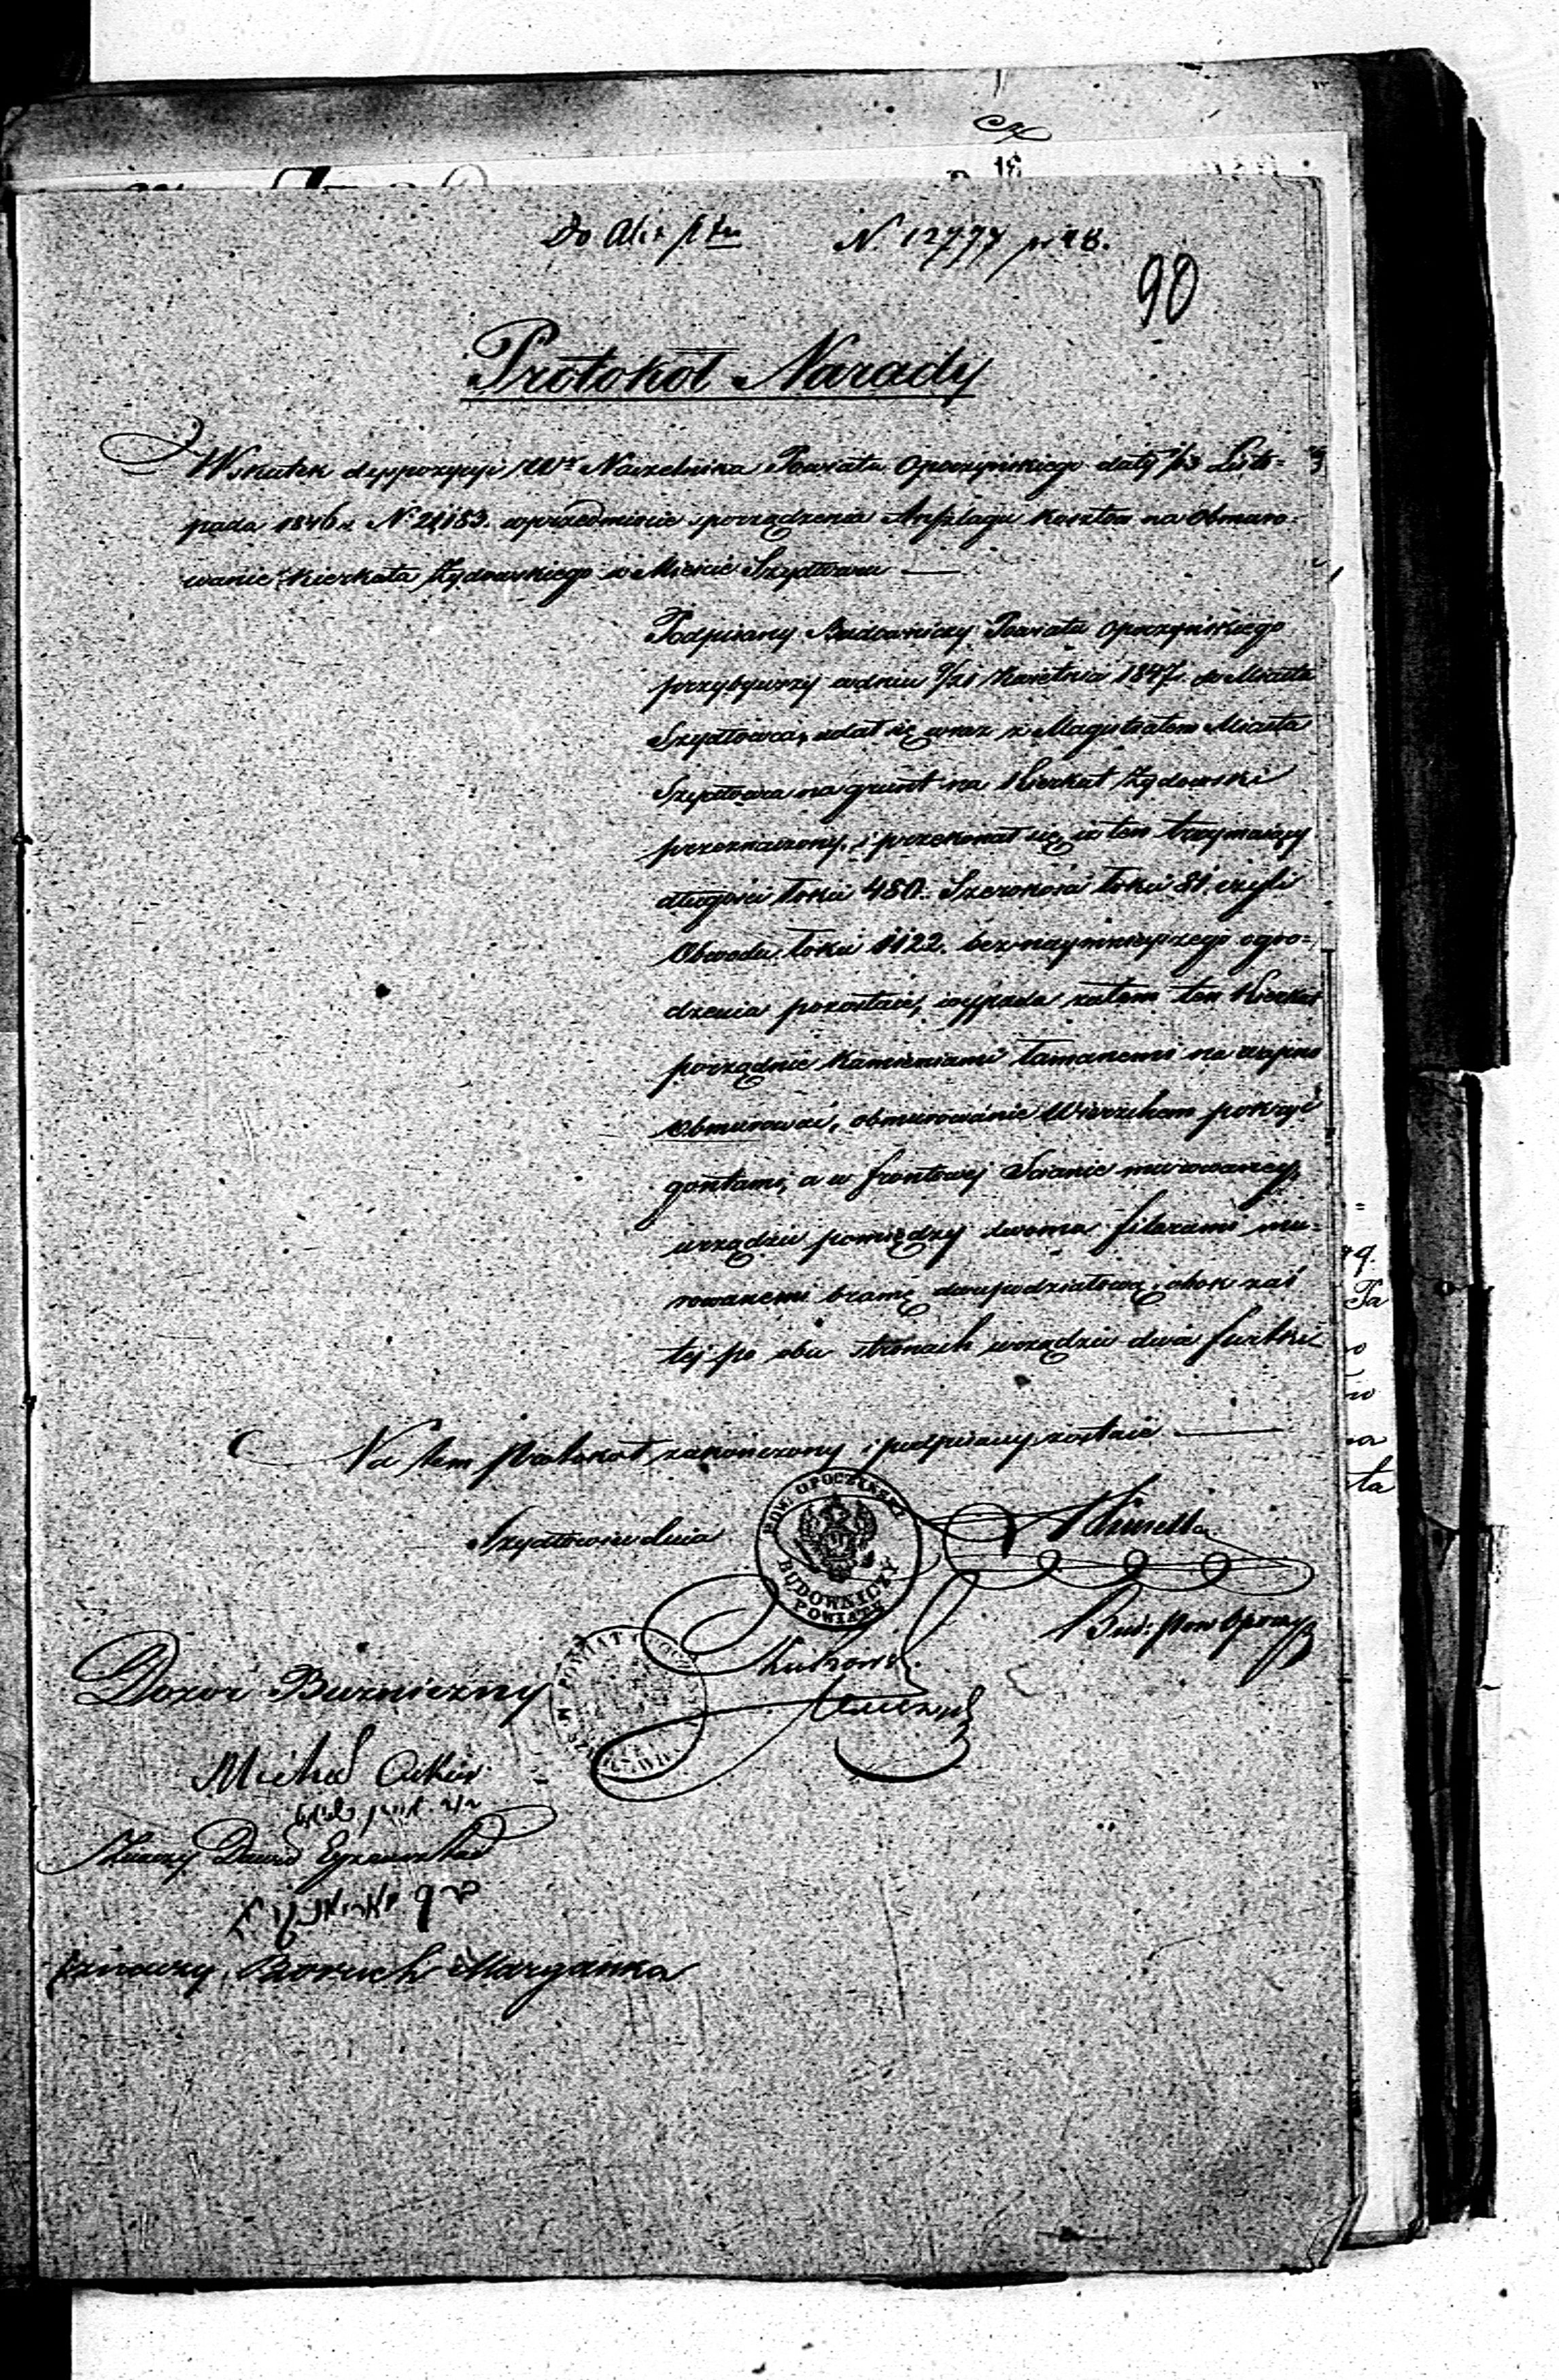 N 12777
90
Protokół Narady
W Skutek dyspozycyi Naczelnika Powiatu Opoczyńskiego daty 1/13 Listo=
pada 1846 r. N 21183. w przedmiocie sporządzenia Anszlagu kosztów na Obmuro=
wanie Kierkata Żydowskiego w Mieście Szydłowcu —
Podpisany Budowniczy Powiatu Opoczyńskiego
przybywszy w dniu 9/21 Kwietnia 1847 r. do Miasta
Szydłowca, udał się wraz z Magistratem Miasta
Szydłowca na grunt na Kierkut Żydowski
przeznaczony, i przekonał się, iż ten trzymaiący
długości łokci 480. Szerokości łokci 81. czyli
Obwodu łokci 1122. bez naymnieyszego ogro=
dzenia pozostaie, wypada zatem ten Kierkut
porządnie Kamieniami łamanemi na wapno
Obmurować, obmurowanie Wierzchem pokryć
gontami, a w frontowej Ścianie murowaney,
urządzić pomiędzy dwoma filarami mu=
rowanemi bramę dwupodziałową, obok zaś
tej po obu stronach urządzić dwie furtki
Na tem Protokół zakończony i podpisany zostaie —
Szydłowiec dnia
POW. OPOCZYŃSKI
BUDOWNICZY
POWIATU
Bud: Pow Opoczyń
Dozór Bużniczny
POWIAT
Michał
Dawid
Boruch Margańka